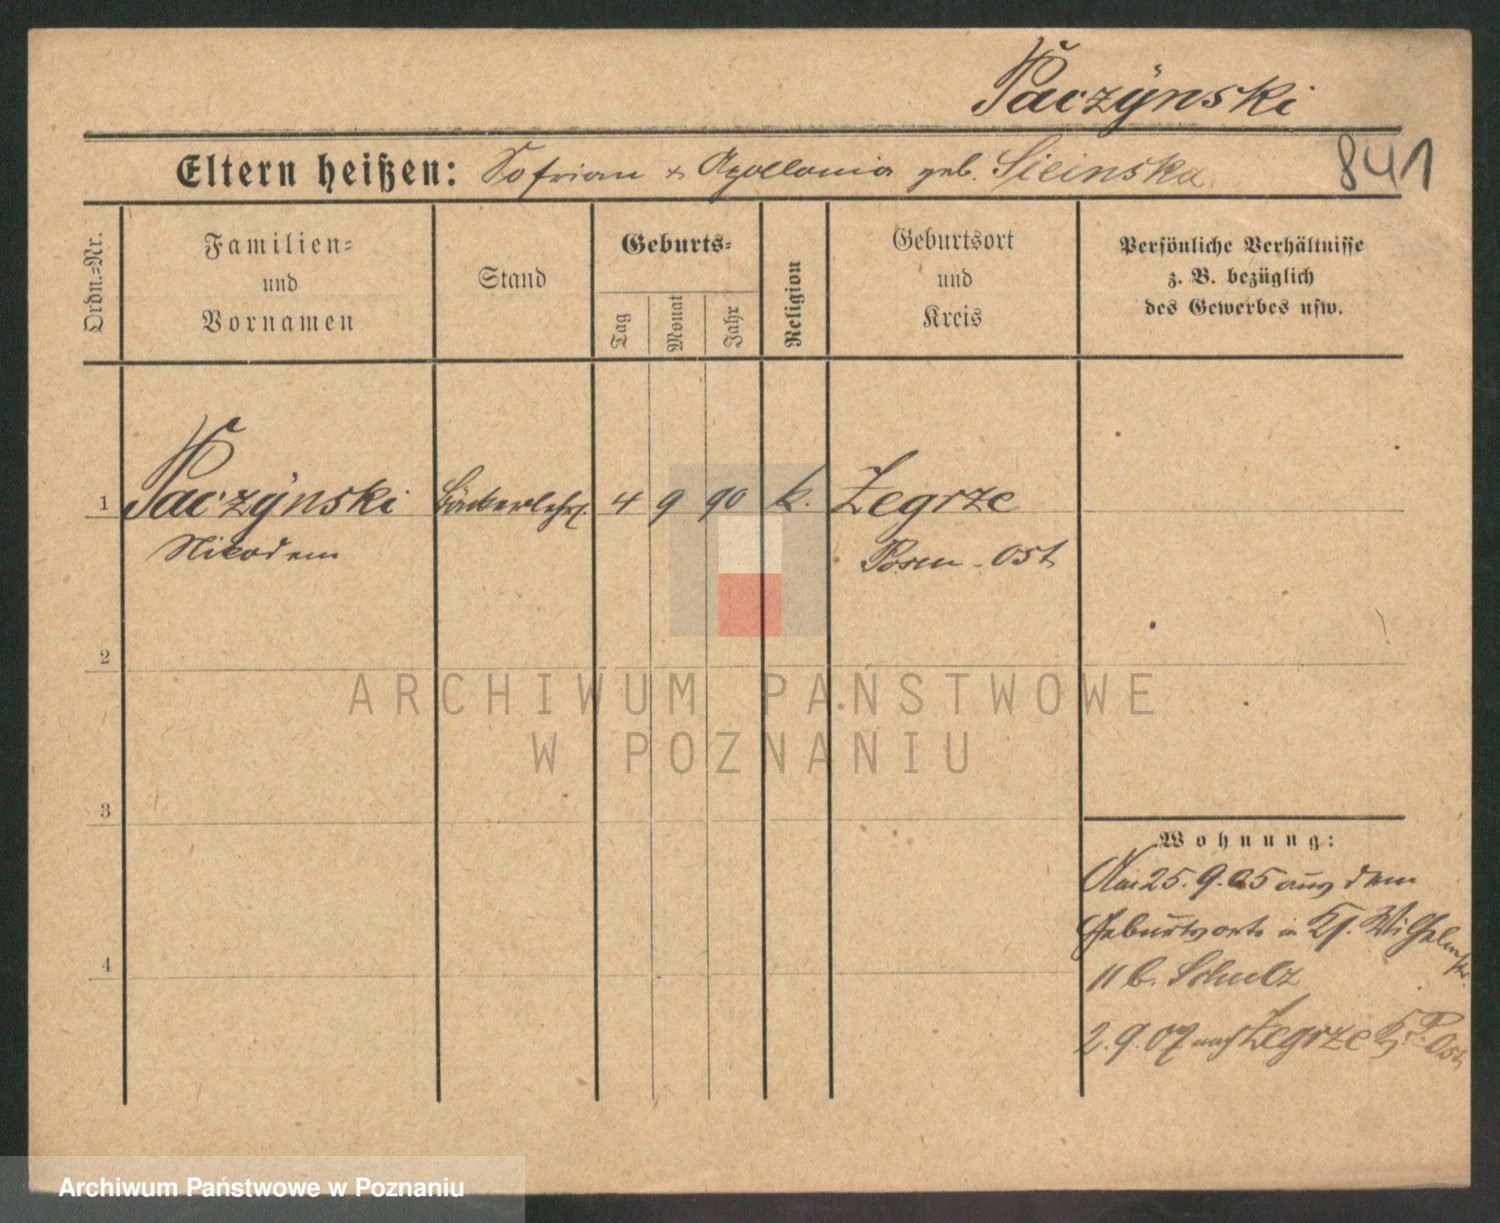 Paczyński
841
Eltern heißen: Sofrian + Apollonia geb. Sieinska
Ordn.-Nr.
Familien-
und
Vornamen
Stand
Geburts-
Tag
Monat
Jahr
Religion
Geburtsort
und
Kreis
Persönliche Verhältnisse
z. B. bezüglich
des Gewerbes usw.
1 Paczyński Bäckerlehrl. 4 9 90 k. Zegrze
Nikodem Posen-Ost
2
3
4
Wohnung:
Am 25.9.05 aus dem
Geburtsorte in Kl. Wilhelmstr.
11 b. Schulz
2.9.07 nach Zegrze Kr. P. Ost
ARCHIWUM PAŃSTWOWE
W POZNANIU
Archiwum Państwowe w Poznaniu